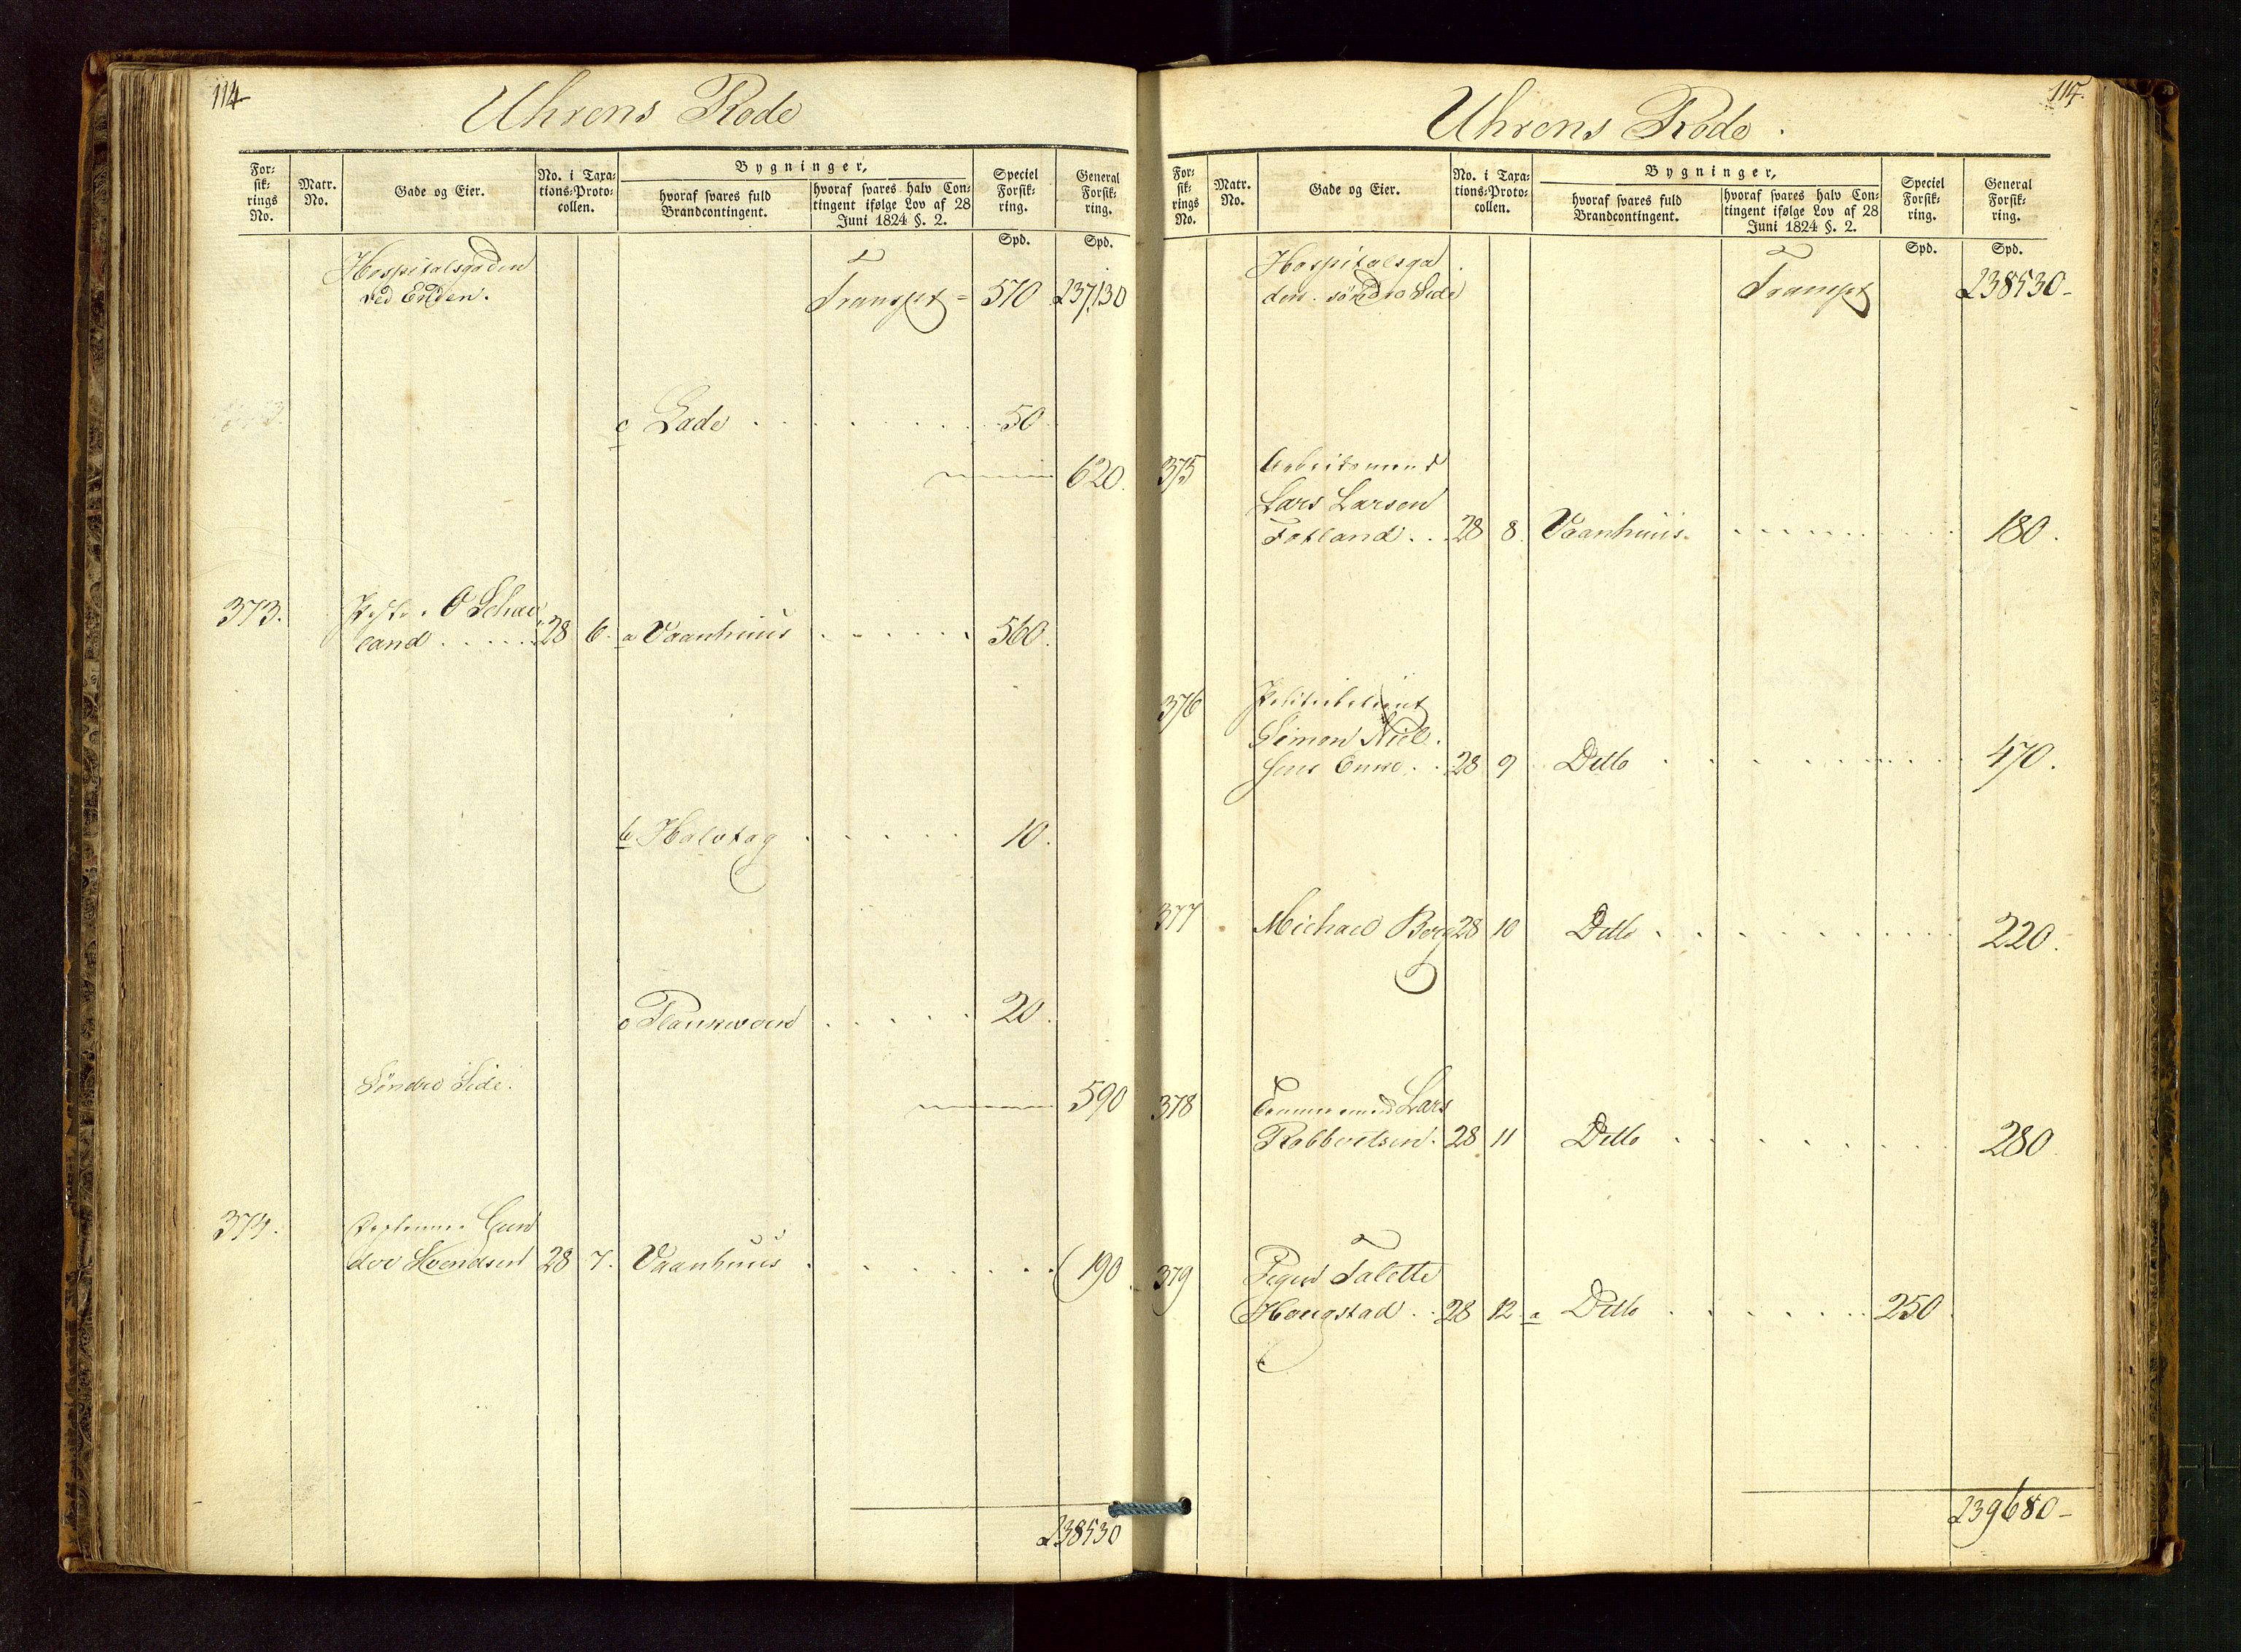 114
Uhrens Rode
For:
sik:
rings
No.
Matr.
No.
Gade og Eier.
No. i Taxa:
tions:Proto:
collen.
Bygninger,
hvoraf svares fuld
Brandcontingent.
hvoraf svares halv Con:
tingent ifølge Lov af 28
Juni 1824 §. 2.
Speciel
Forsik:
ring.
General
Forsik:
ring.
Spd. Spd.
Hospitalsgaden
ved Enden.
Transpt = 570 237,130
c Lade 50
620.
373. O Schae
land 28 6. a Vaanhuus 560.
b Halvtag 10.
c Plankeværk 20.
Søndre Side.
590
374. Gun
der Svendsen 28 7. Vaanhuus 190
238530
115.
Uhrens Rode.
For:
sik:
rings
No.
Matr.
No.
Gade og Eier.
No. i Taxa:
tions:Proto:
collen.
Bygninger,
hvoraf svares fuld
Brandcontingent.
hvoraf svares halv Con:
tingent ifølge Lov af 28
Juni 1824 §. 2.
Speciel
Forsik:
ring.
General
Forsik:
ring.
Spd. Spd.
Hospitalsga
den. søndre Side
Transpt 238530-
375 Arbeidsmand
Lars Larsen
Fotland 28 8. Vaanhuus. 180.
376 Politibetjent
Simon Niel.
sens Enke 28 9 Ditto 470.
377 Michael Berg 28 10 Ditto 220.
378 Tømmermand Lars
Robbertsen. 28 11 Ditto 280
379 Pigen Talette
Hougstad 28 12 a Ditto 250
239680-